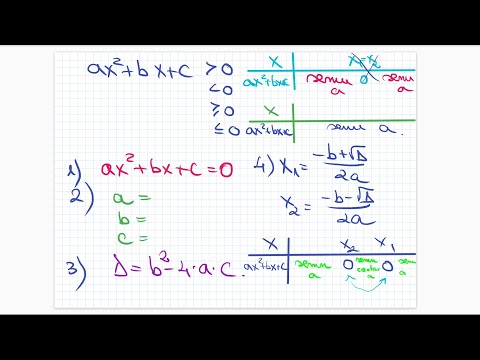 ax²+bx+c >0
<0
≥0
≤0
x x₁=x₂
ax²+bx+c semn a 0 semn a
x
ax²+bx+c semn a.
1) ax²+bx+c=0
2) a=
b=
c=
3) Δ=b²-4·a·c.
4) x₁= -b+√Δ / 2a
x₂= -b-√Δ / 2a
x x₂ x₁
ax²+bx+c semn a 0 semn contrar a 0 semn a